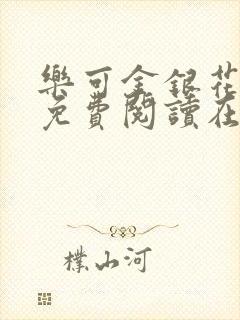 樂可金銀花
免費閱讀在
樸山河